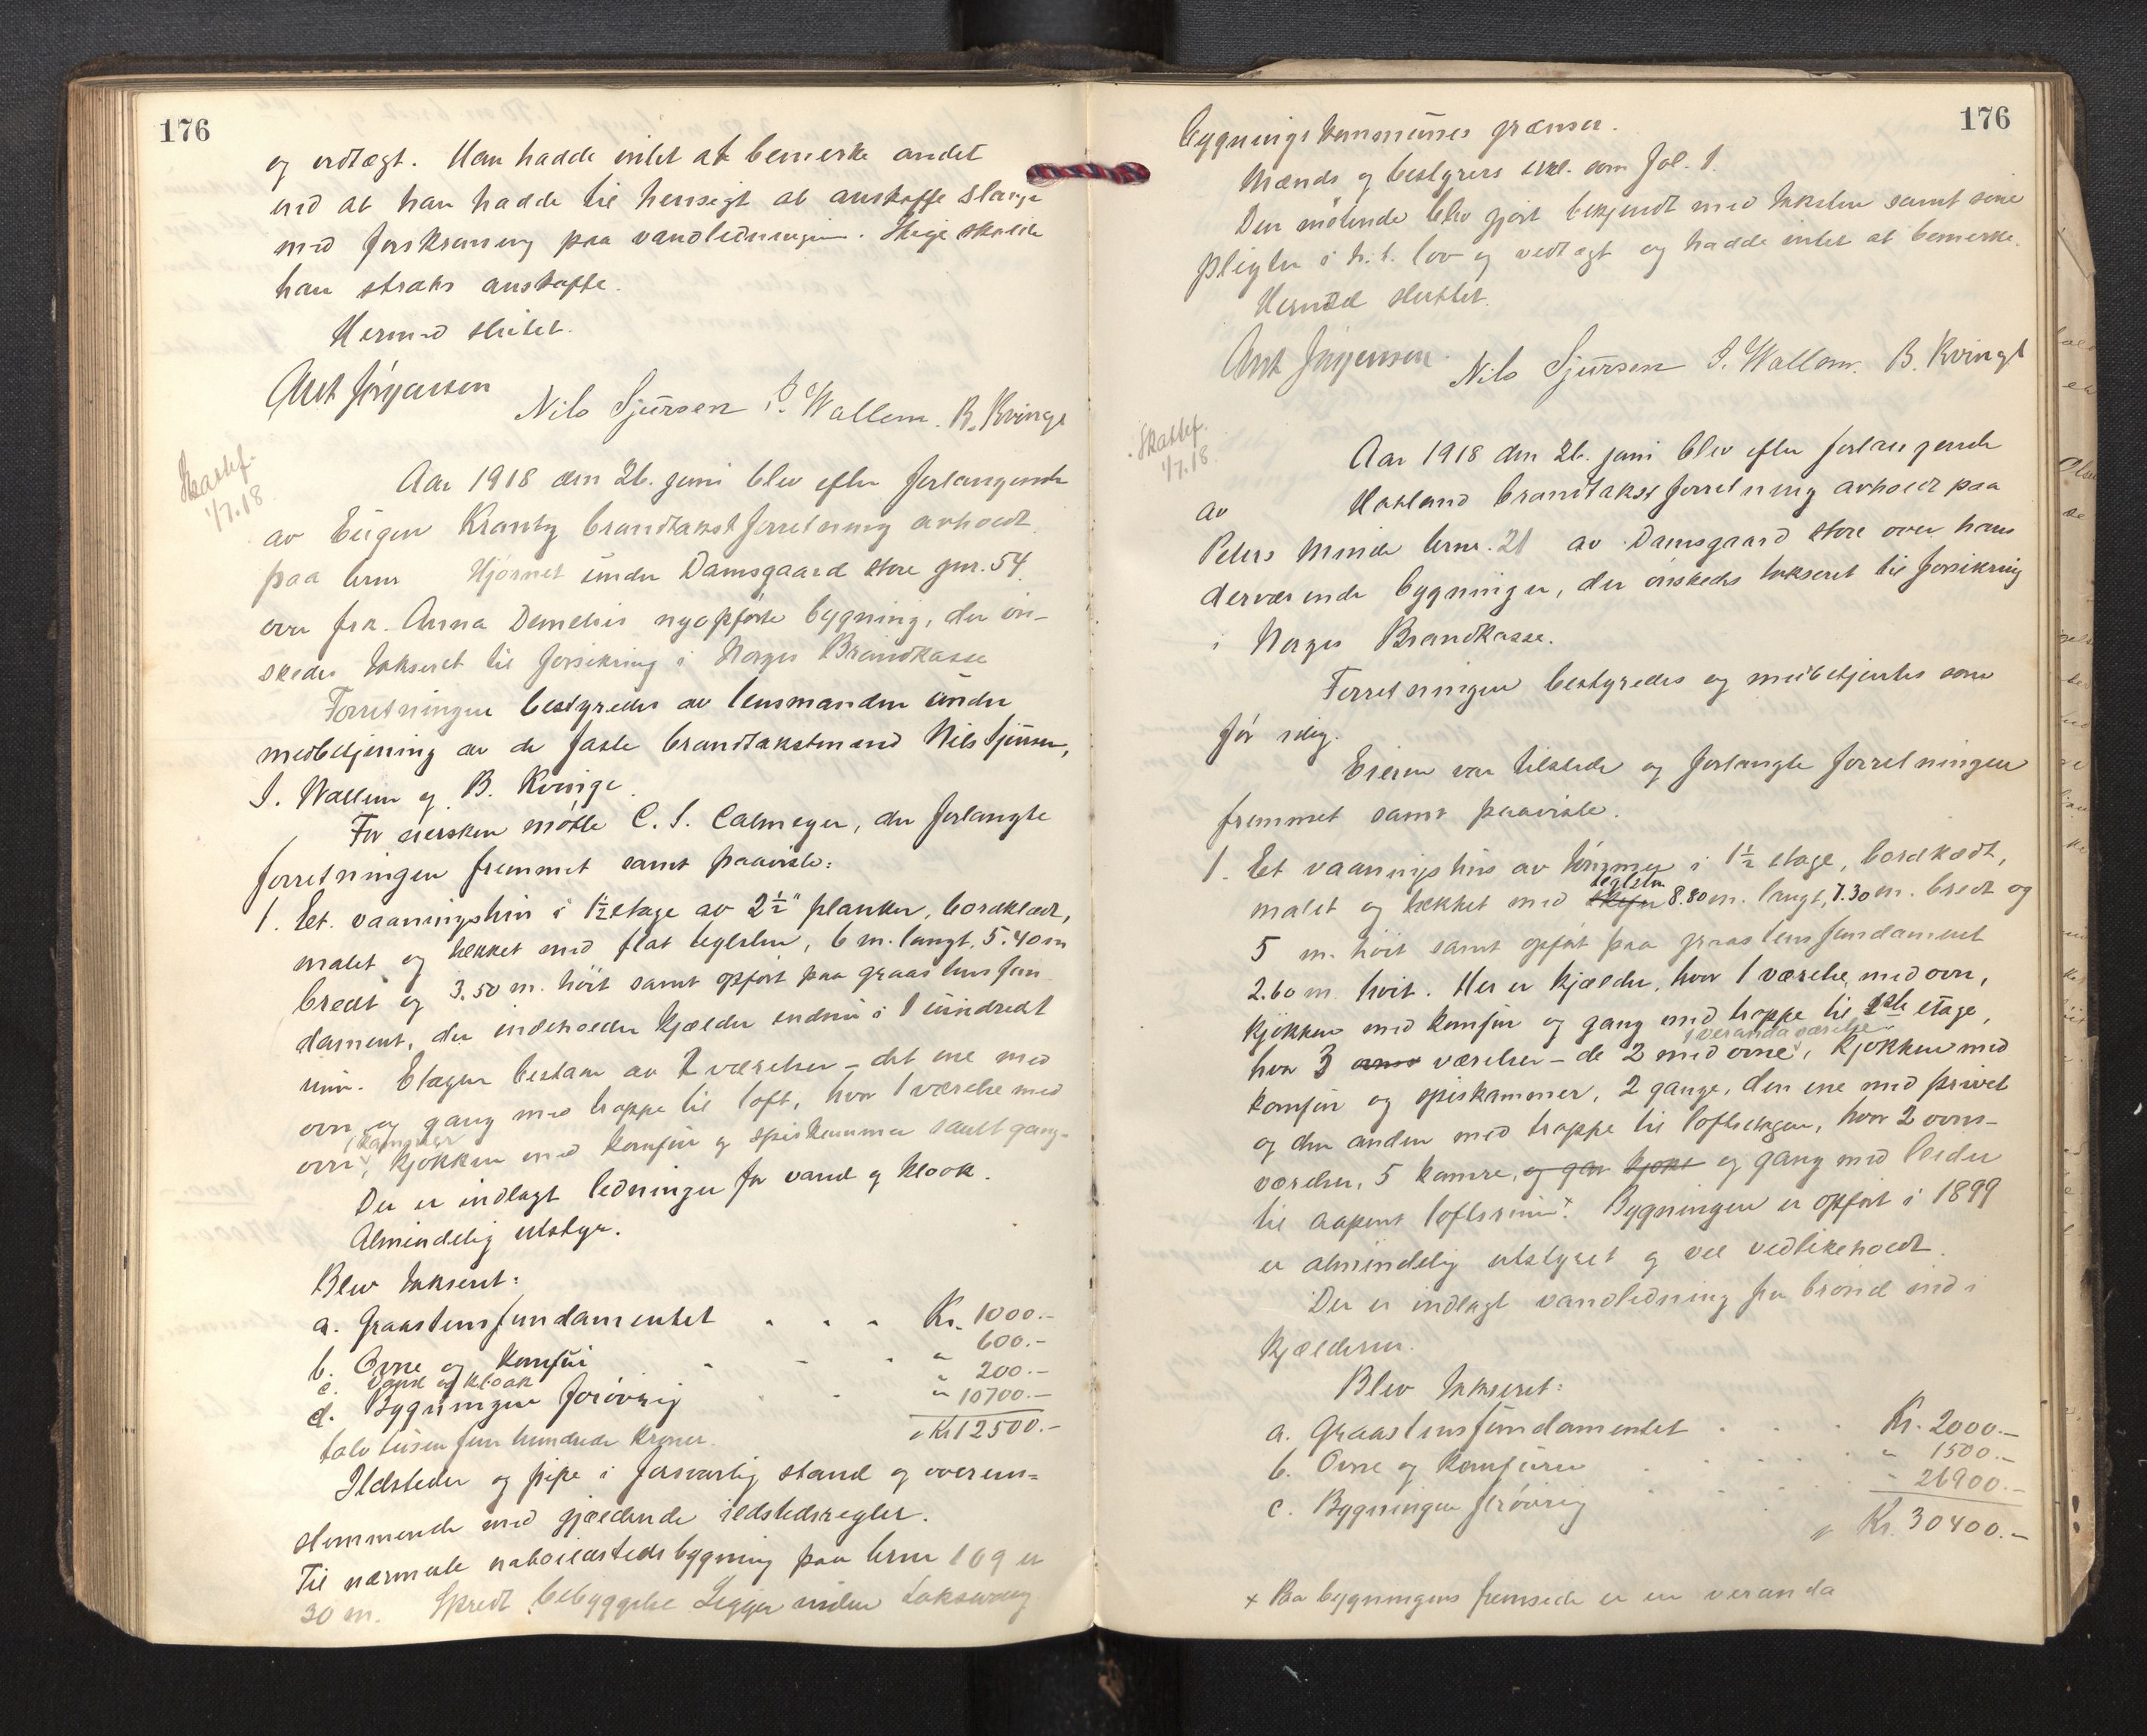 176
og vedtægt. Han hadde intet at bemerke andet
end at han hadde til hensigt at anskaffe slange
med forskruning paa vandledningen. Stige skulde
han straks anskaffe.
Hermed sluttet.
Ant Jørgensen
Nils Sjursen I. Wallem. B. Kvinge
Skattef.
1/7.18
Aar 1918 den 26. juni blev efter forlangende
av Eugen Krantz brandtakstforretning avholdt
paa brnr Hjørnet under Damsgaard store gnr. 54
over frk. Anna nyopførte bygning, der øn-
skedes takseret til forsikring i Norges Brandkasse
Forretningen bestyredes av lensmanden under
medbetjening av de faste brandtakstmænd Nils Sjursen,
I. Wallem og B. Kvinge.
For eiersken møtte C. S. Calmeyer, der forlangte
forretningen fremmet samt paaviste:
1. Et vaaningshus i 1½ etage av 2½" planker, bordklædt,
malet og tækket med flat teglsten, 6 m. langt, 5.40 m
bredt og 3.50 m. høit samt opført paa graastensfun-
dament, der indeholder kjælder endnu i 1 uindredt
rum. Etagen bestaar av 2 værelser - det ene med
ovn og gang med trappe til loft, hvor 1 værelse med
1 kammer
ovn, kjøkken med komfur og spiskammer samt gang.
Der er indlagt ledninger for vand og kloak.
Almindelig utstyr.
Blev takseret:
a. Graastensfundamentet . . . Kr. 1000.-
b. Ovne og komfur - - . " 600.-
c. Vand og kloak " 200.-
d. Bygningen forøvrig . . " 10700.-
tolv tusen fem hundrede kroner. Kr 12500.-
Ildsteder og pipe i forsvarlig stand og overens-
stemmende med gjældende ildstedsregler.
Til nærmeste naboildstedsbygning paa brnr 109 er
30 m. Spredt bebyggelse Ligger inden
176
bygningskommunes grænser.
Mænds og bestyrers erkl. som fol. 1.
Den møtende blev gjort bekjendt med taksten samt sine
pligter i h. t. lov og vedtægt og hadde intet at bemerke.
Hermed sluttet.
Ant Jørgensen. Nils Sjursen I. Wallem. B. Kvinge
Skattef.
1/7.18.
Aar 1918 den 26. juni blev efter forlangende
av Hakland brandtakstforretning avholdt paa
Peters Minde brnr. 21 av Damsgaard store over hans
derværende bygninger, der ønskedes takseret til forsikring
i Norges Brandkasse.
Forretningen bestyredes og medbetjentes som
før idag.
Eieren var tilstede og forlangte forretningen
fremmet samt paaviste.
1. Et vaaningshus av tømmer i 1½ etage, bordklædt,
teglsten
malet og tækket med skifer 8.80 m. langt, 7.30 m. bredt og
5 m. høit samt opført paa graastensfundament
2.60 m. høit. Her er kjælder, hvor 1 værelse med ovn,
kjøkken med komfur og gang med trappe til 1ste etage,
1 verandaværelse
hvor 3 værelser - de 2 med ovne, kjøkken med
komfur og spiskammer, 2 gange, den ene med privet
og den anden med trappe til loftsetagen, hvor 2 ovns-
værelser, 5 kamre, og gan kjøkk og gang med leider
til aapent loftsrum x. Bygningen er opført i 1899
er almindelig utstyret og vel vedlikeholdt.
Der er indlagt vandledning fra brønd ind i
kjælderen.
Blev takseret:
a. Graastensfundamentet . . . Kr. 2000.-
b. Ovne og komfurer . . . . . " 1500.-
c. Bygningen forøvrig . . . . " 26900.-
Kr. 30400.-
x Paa bygningens fremside er en veranda